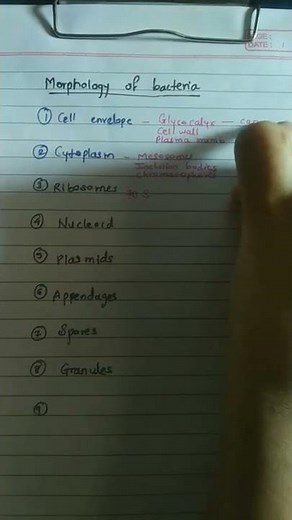 DATE:
Morphology of bacteria
① Cell envelope - Glycocalyx —
Cell wall
Plasma memb
② Cytoplasm - Mesosomes
Inclusion bodies
Chromatophores
③ Ribosomes 70 S
④ Nucleoid
⑤ Plasmids
⑥ Appendages
⑦ Spores
⑧ Granules
⑨